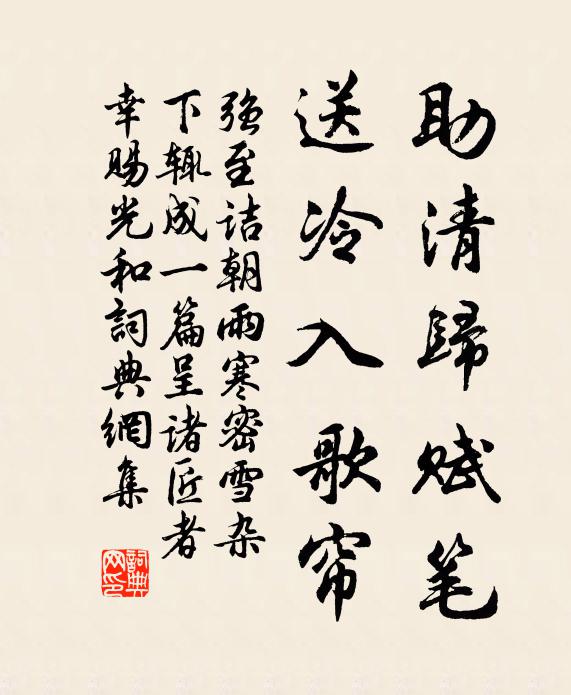 助清歸赋笔
送冷入歌帘
強至詰朝雨寒密雪杂
下辄成一篇呈诸匠者
幸賜光和詞典網集
詞典
网印